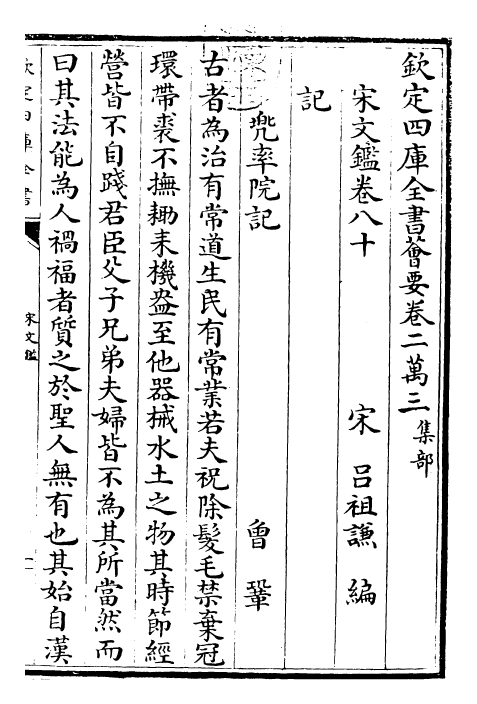 欽定四庫全書薈要卷二萬三集部
宋文鑑卷八十
宋 呂祖謙 編
記
兜率院記
曾鞏
古者為治有常道生民有常業若夫祝除髮毛禁棄冠
環帶裘不撫耡耒機盎至他器械水土之物其時節經
營皆不自踐君臣父子兄弟夫婦皆不為其所當然而
曰其法能為人禍福者質之於聖人無有也其始自漢
欽定四庫全書
宋文鑑
一